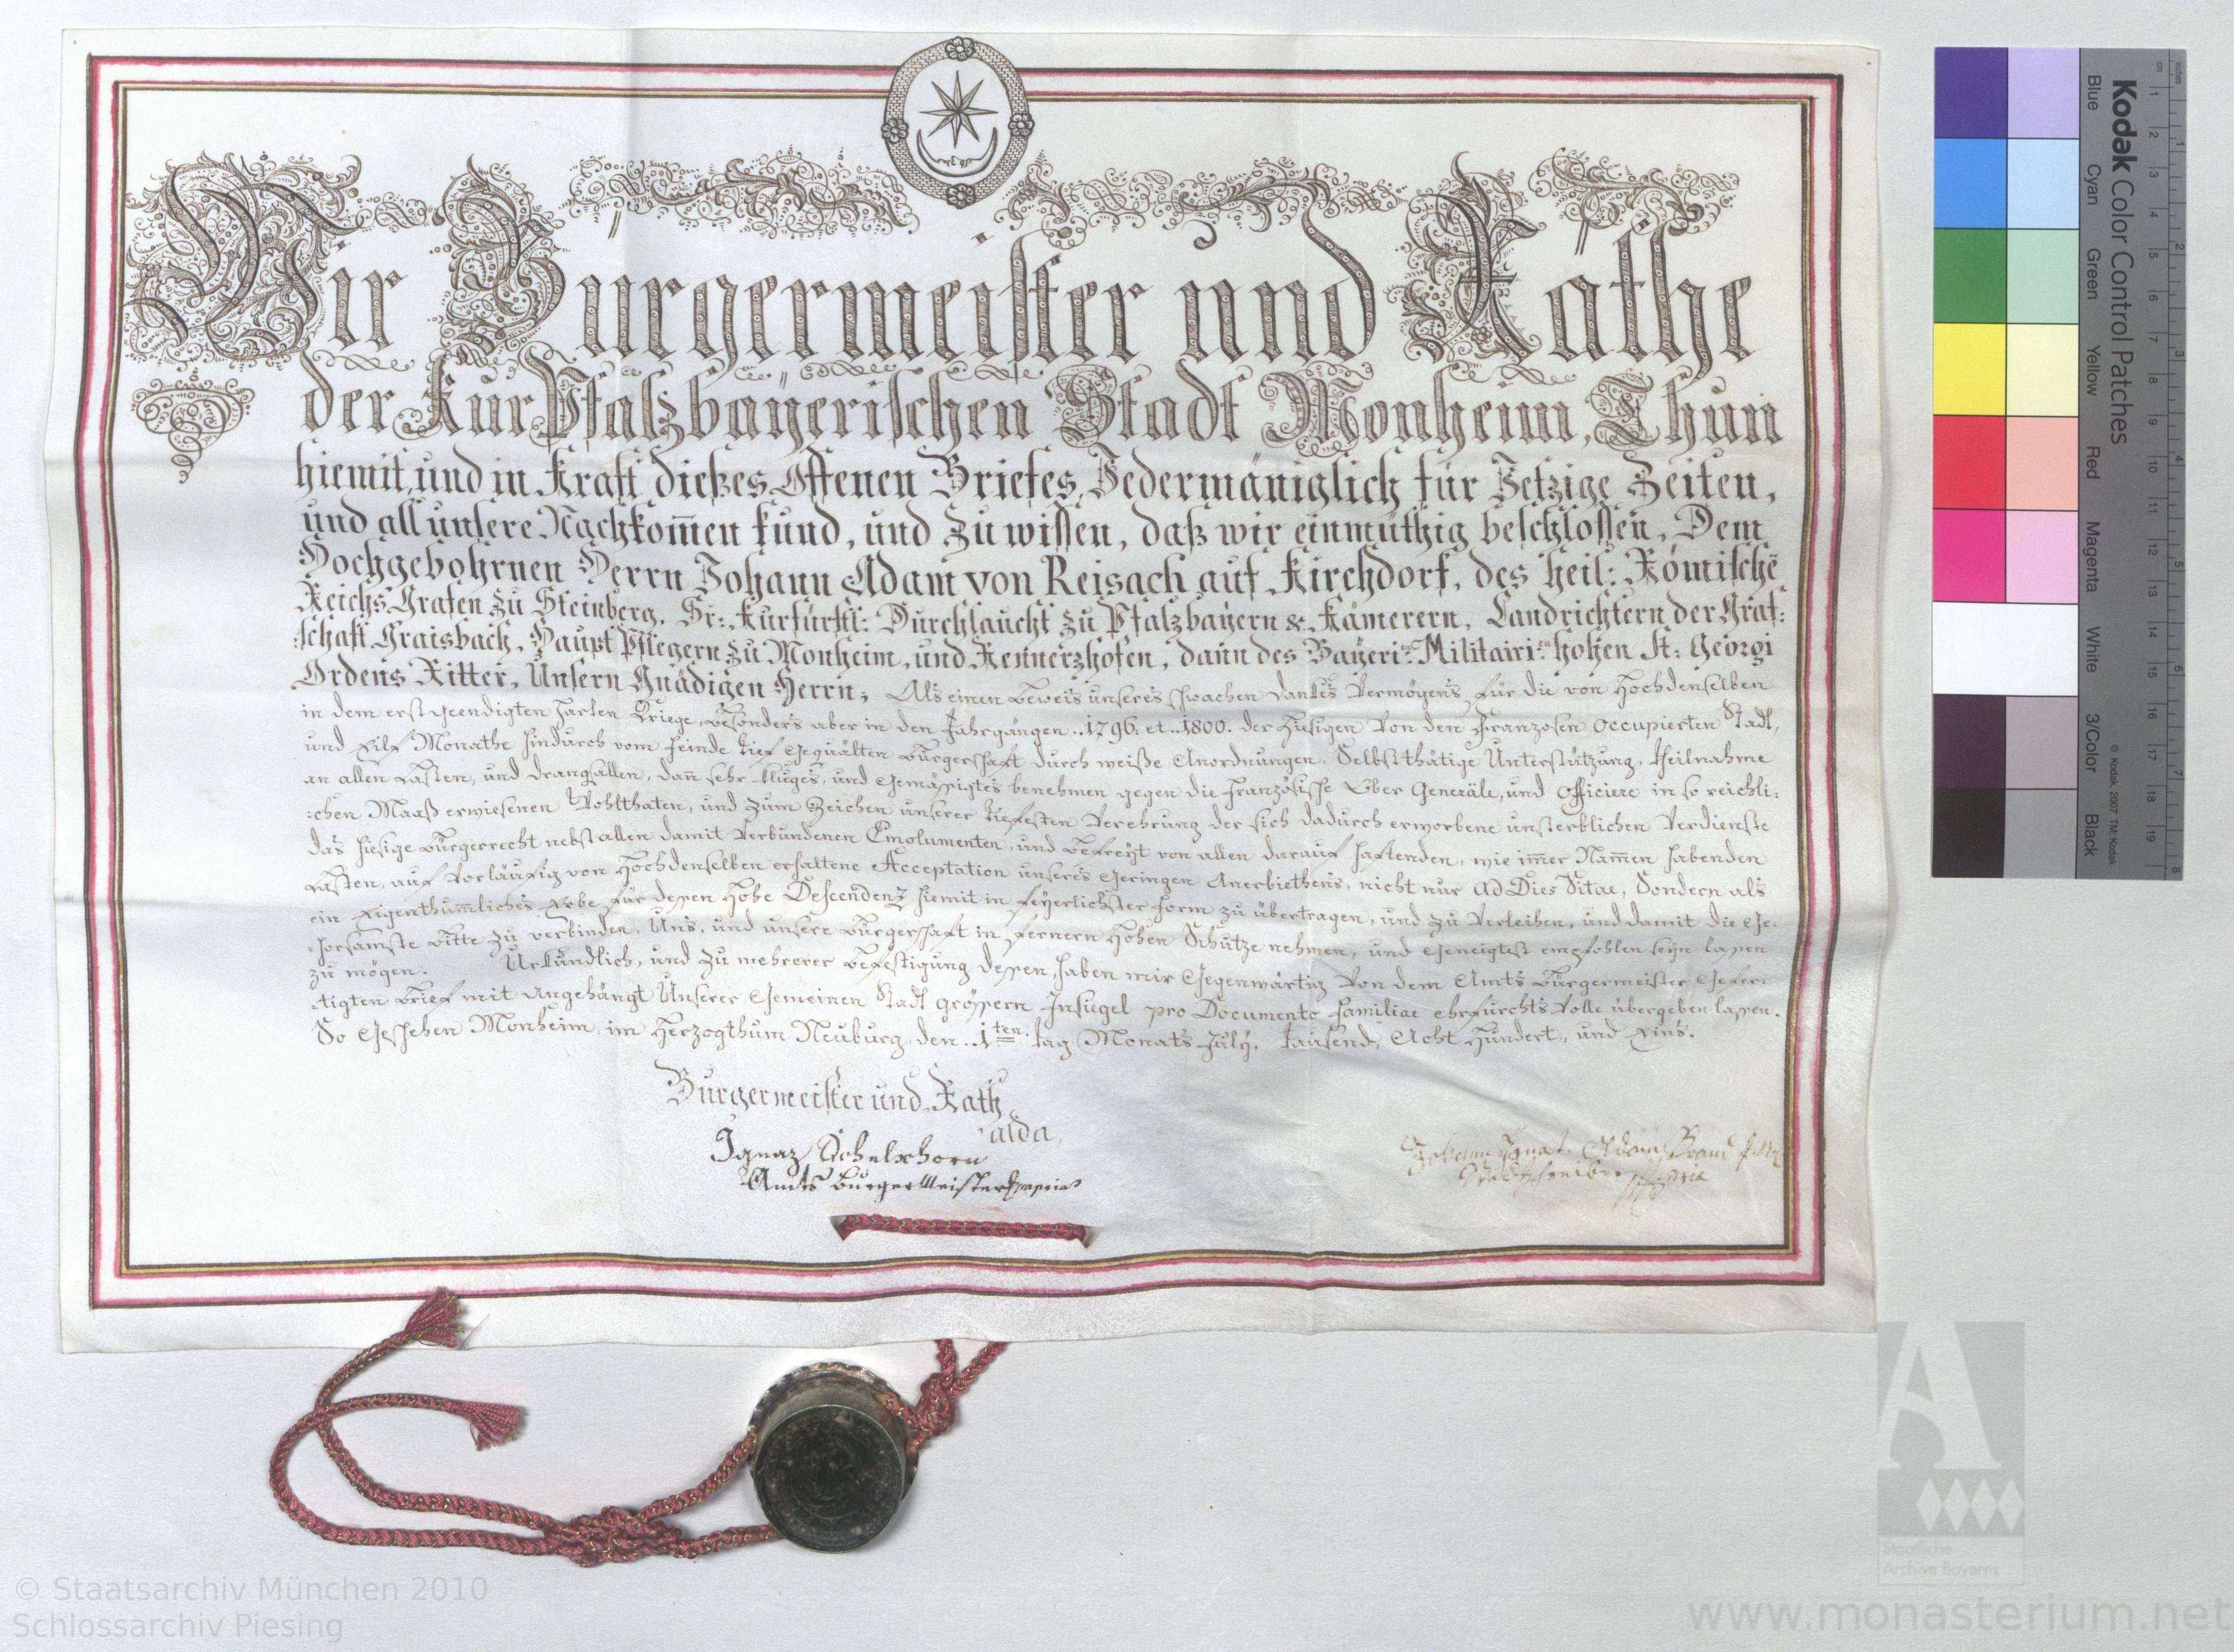 Wir Burgermeister und Rathe
der KurPfalzbayerischen Stadt Monheim, Thun
hiemit, und in Kraft dießes Offenen Briefes, Jedermäniglich für Jetzige Zeiten,
und all unsere Nachkom̅en kund, und zu wissen, daß wir einmüthig beschlossen, Dem
Hochgebohrnen Herrn Johann Adam von Reisach auf Kirchdorf, des heil: Römische̅
Reichs Grafen zu Steinberg, Sr: Kurfürstl: Durchlaucht zu Pfalzbayern & Kämerern, Landrichtern der Graf:
:schaft Graisbach, Haupt Pflegern zu Monheim, und Rennerzhofen, dan̅ des Bayeri: Militairi: hohen St: Georgi
Ordens Ritter, Unsern Gnädigen Herrn; Als einen Beweis unseres schwachen Dankes Vermögens, für die von Hochdenselben
in dem erst geendigten harten Kriege, besonders aber in den Jahrgängen ..1796. et ..1800. der hiesigen von den Franzosen occupierten Stadt,
und Eilf Monathe hindurch vom Feinde tief gequälten Bürgerschaft durch weiße Anordnungen, Selbstthätige Unterstützung, Theilnahme
an allen Lasten, und Drangsallen, dan̅ sehr kluges, und gemässigtes benehmen gegen die Französische Ober Generäle, und Officiere in so reichli:
:chen Maaß erwiesenen Wohlthaten, und zum Zeichen unserer tiefesten Verehrung der sich dadurch erworbene unsterblichen Verdienste
das hiesige Bürgerrecht nebst allen damit verbundenen Emolumenten, und befreyt von allen darauf haftenden, wie im̅er Nam̅en habenden
Lasten, auf vorläufig von Hochdenselben erhaltene Acceptation unseres geringen Anerbiethens, nicht nur ad Dies Vitae, Sondern als
ein Eigenthum̅liches Erbe für dessen Hohe Descendenz hiemit in feyerlichster Form zu übertragen, und zu verleihen, und damit die Ge:
:horsamste Bitte zu verbinden, Uns, und unsere Bürgerschaft in fernern Hohen Schutze nehmen, und geneigtest empfohlen seyn lassen
zu mögen. Urkundlich, und zu mehrerer Befestigung dessen, haben wir Gegenwärtig von dem Amts Bürgermeister Gefer:
:tigten Brief mit angehängt Unserer Gemeinen Stadt grössern Insiegel pro Documento Familiae ehrfurchts volle übergeben lassen.
So Geschehen Monheim, im Herzogthum Neuburg, den .1ten. Tag Monats July. Tausend, Acht Hundert, und Eins.
Burgermeister und Rath
alda
Ignaz Schelxhorn
Amts BürgerMeister
Johann Ignat
Stadtschreiber
Kodak Color Control Patches
Blue Cyan Green Yellow Red Magenta White 3/Color Black
© Kodak, 2007 TM: Kodak
cm 1 2 3 4 5 6 7 8 9 10 11 12 13 14 15 16 17 18 19
inches 1 2 3 4 5 6 7 8
Staatliche
Archive Bayerns
© Staatsarchiv München 2010
Schlossarchiv Piesing
www.monasterium.net